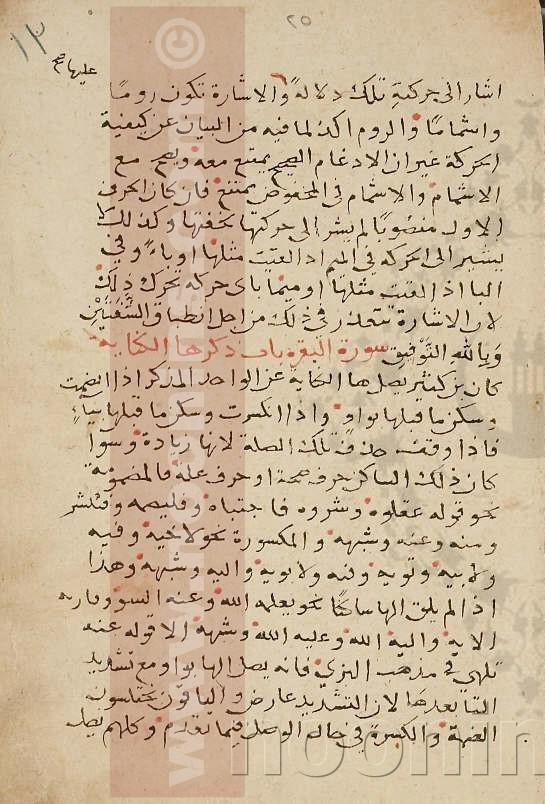 ٢٥
١٣
عليها صح
اشار الى حركته تلك دلالة والاشارة تكون روما
واشماما والروم اكد لما فيه من البيان عن كيفية
الحركة غير ان الادغام الصحيح يمتنع معه ويصح مع
الاشمام والاشمام في المخفوض يمتنع فان كان الحرف
الاول منصوبا لم يشر الى حركتها لخفتها وكذلك لا
يشير الى الحركة في الميم اذا لقيت مثلها او باء وفي
البا اذا لقيت مثلها او ميما باى حركة تحرك ذلك
لان الاشارة تتعذر في ذلك من اجل انطباق الشفتين
وبالله التوفيق سورة البقرة باب ذكر ها الكناية
كان بن كثير يصل ها الكناية عن الواحد المذكر اذا انضمت
وسكن ما قبلها بواو واذا انكسرت وسكن ما قبلها بياء
فاذا وقف حذف تلك الصلة لانها زيادة وسوا
كان ذلك الساكن حرف صحة او حرف علة فالمضمومة
نحو قوله عقلوه وشروه فاجتباه وفليصمه وفبشر
ومنه وعنه وشبهه والمكسورة نحو لاخيه وفيه
ولابيه ونوبه ولابويه واليه وشبهه وهذا
اذا لم يلق الها ساكنا نحو يعلمه الله وعنه السو وفاريه
الاية واليه الله وعليه الله وشبهه الا قوله عنه
تلهى في مذهب البزى فانه يصل الها بواو مع تشديد
التا بعدها لان التشديد عارض والباقون يختلسون
الضمة والكسرة في حال الوصل فيما تقدم وكلهم يصل
noormin
www. .com
©